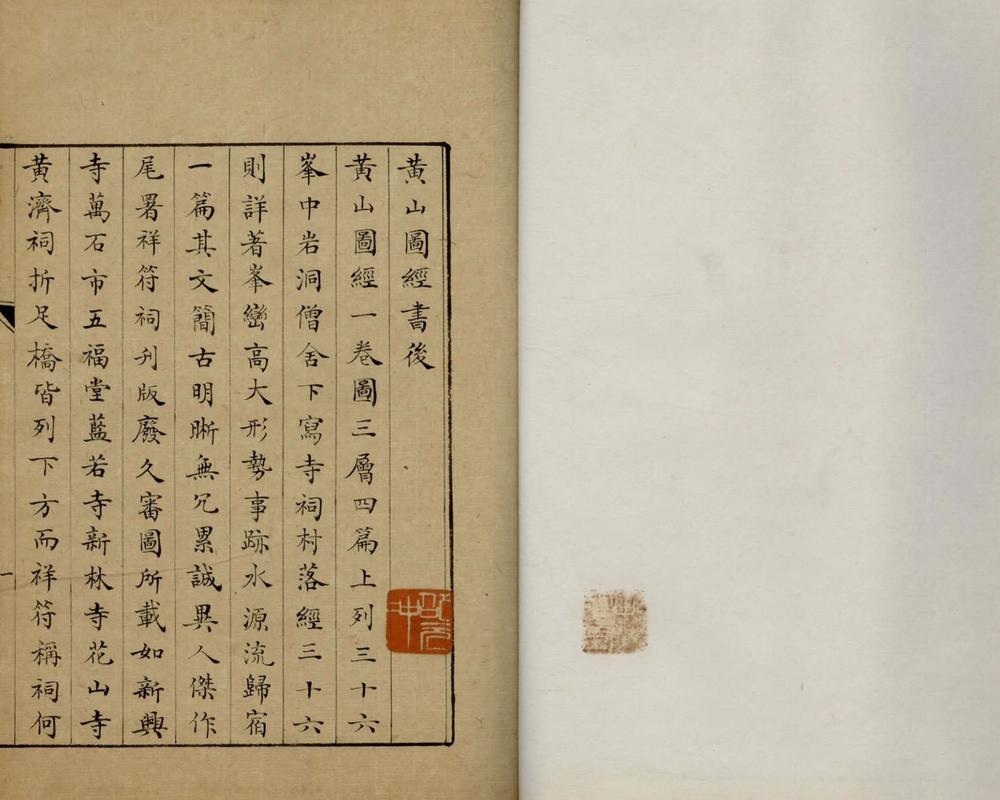 黃山圖經書後
黃山圖經一卷圖三層四篇上列三十六
峯中岩洞僧舍下寫寺祠村落經三十六
則詳著峯巒高大形勢事跡水源流歸宿
一篇其文簡古明晰無冗累誠異人傑作
尾署祥符祠刋版廢久審圖所載如新興
寺萬石市五福堂藍若寺新林寺花山寺
黃濟祠折足橋皆列下方而祥符稱祠何
一